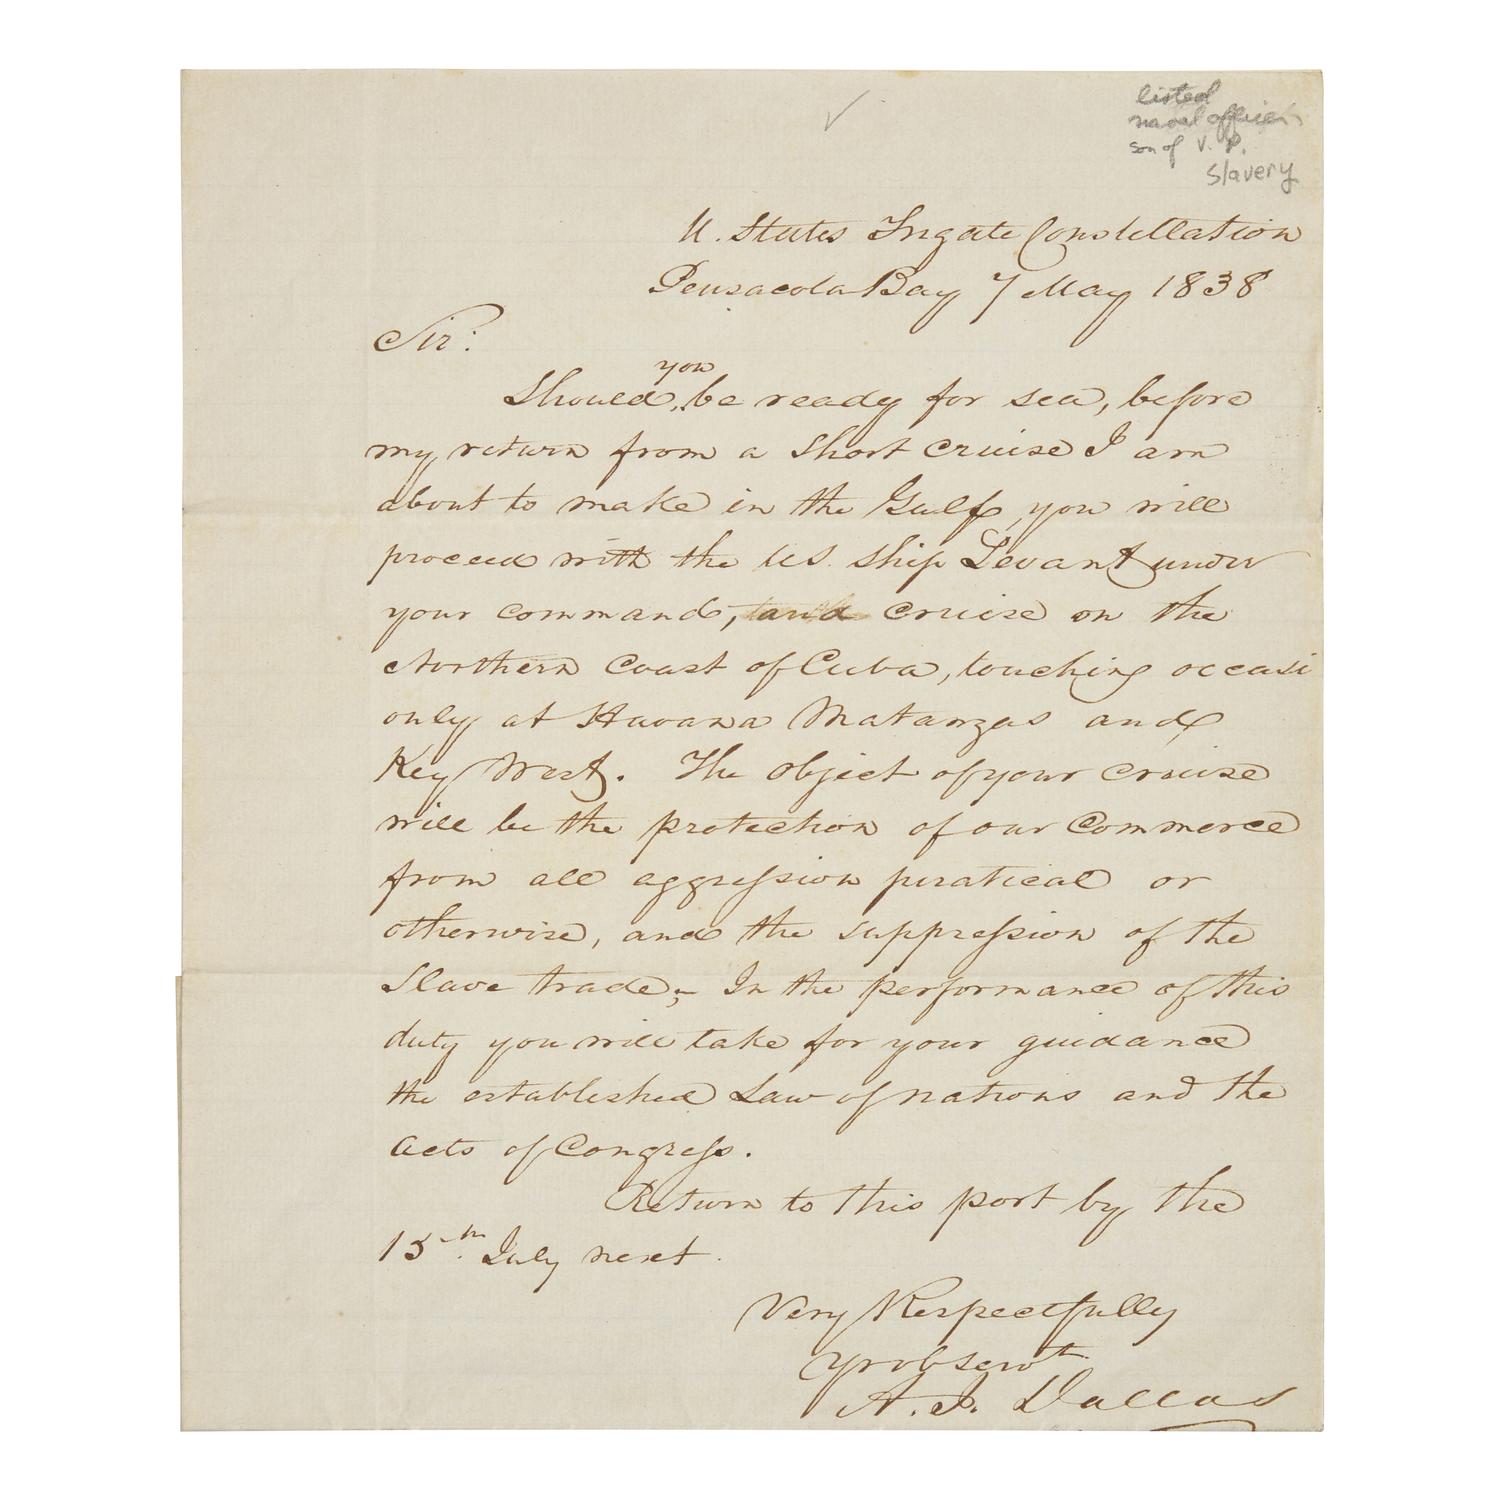 listed
naval officer
son of V. P.
Slavery
U. States Frigate Constellation
Pensacola Bay 7 May 1838
Sir:
you
Should, be ready for sea, before
my return from a short cruise I am
about to make in the Gulf, you will
proceed with the U.S. Ship Levant under
your command, and cruise on the
Northern Coast of Cuba, touching occasi
only at Havana Matanzas and
Key West. The object of your cruise
will be the protection of our Commerce
from all aggression piratical or
otherwise, and the suppression of the
Slave trade;- In the performance of this
duty you will take for your guidance
the established Law of nations and the
Acts of Congress.
Return to this port by the
15th July next.
Very Respectfully
Yr ob servt.
A. J. Dallas